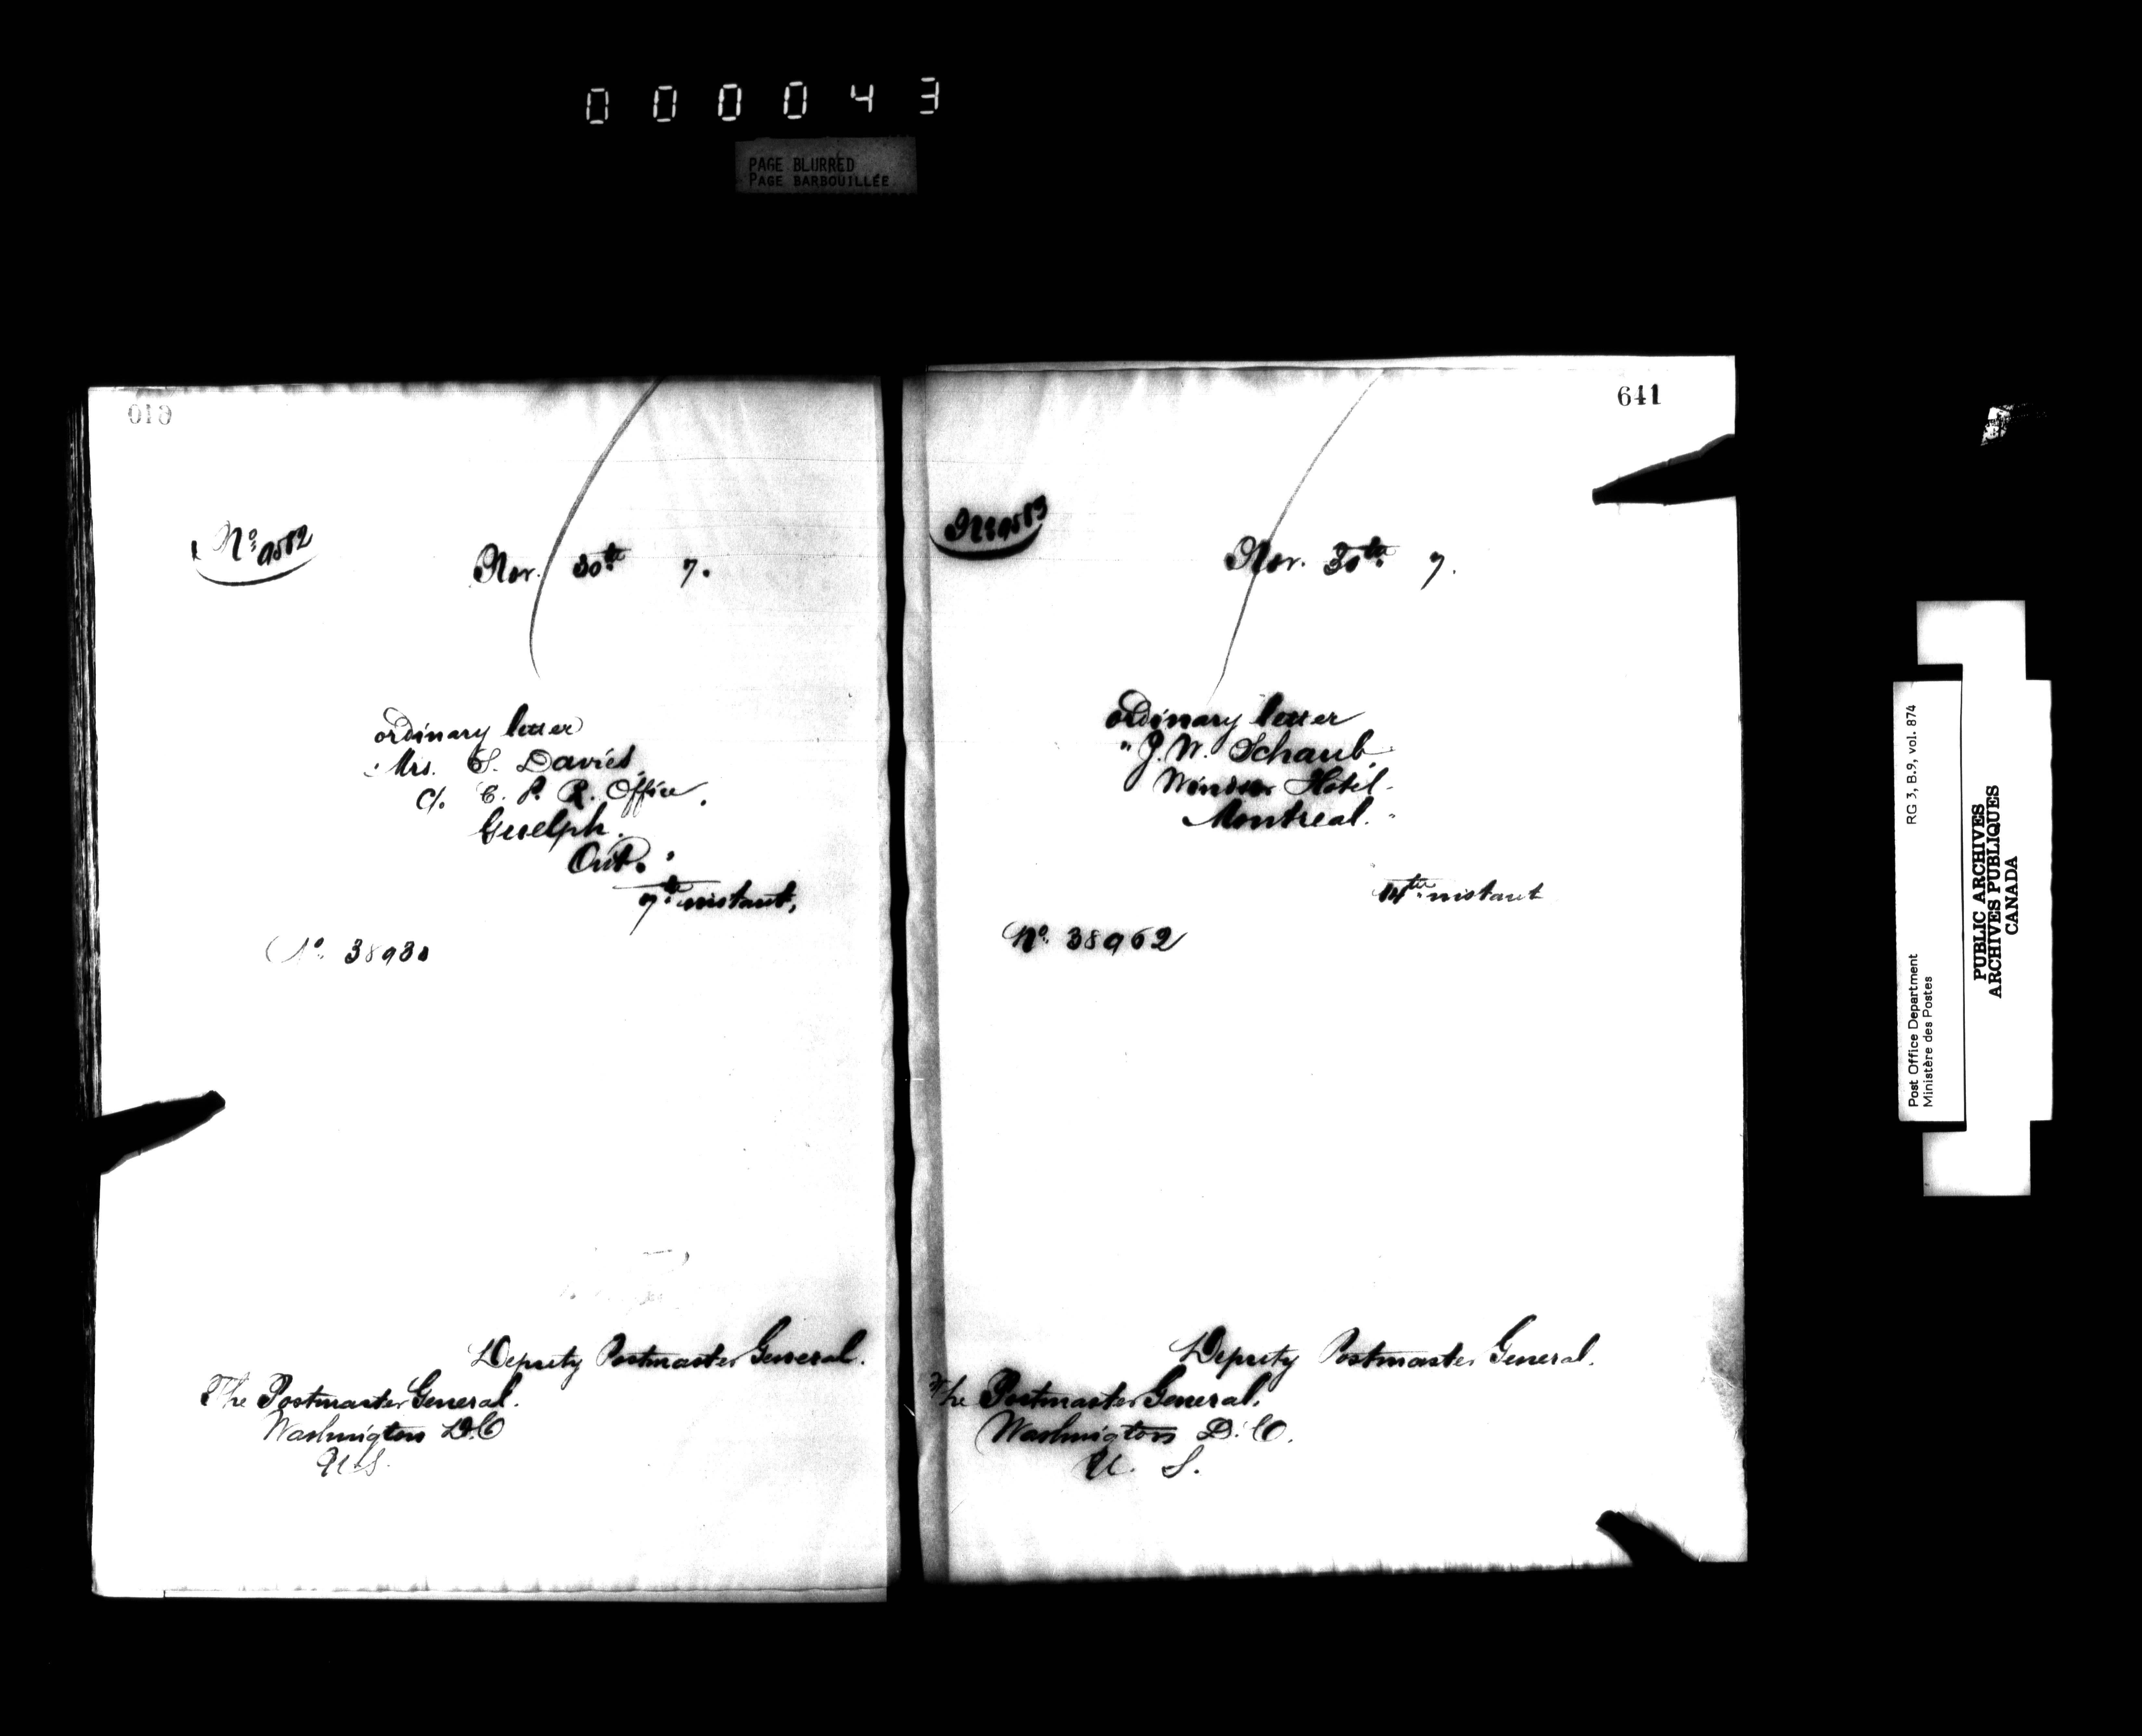 000043
PAGE BLURRED
PAGE BARBOUILLÉE
No. 9582
Nov. 30th 7.
ordinary letter
"Mrs. S. Davies,
c/o C. P. R. Office,
Guelph.
Ont."
7th instant,
No. 38930
Deputy Postmaster General.
The Postmaster General.
Washington D.C
U.S.
641
No 9583
Nov. 30th. 7.
ordinary letter
"J. W. Schaub,
Windsor Hotel-
Montreal."
14th instant
No. 38962
Deputy Postmaster General.
The Postmaster General,
Washington D.C.
U. S.
Post Office Department RG 3, B.9, vol. 874
Ministère des Postes
PUBLIC ARCHIVES
ARCHIVES PUBLIQUES
CANADA